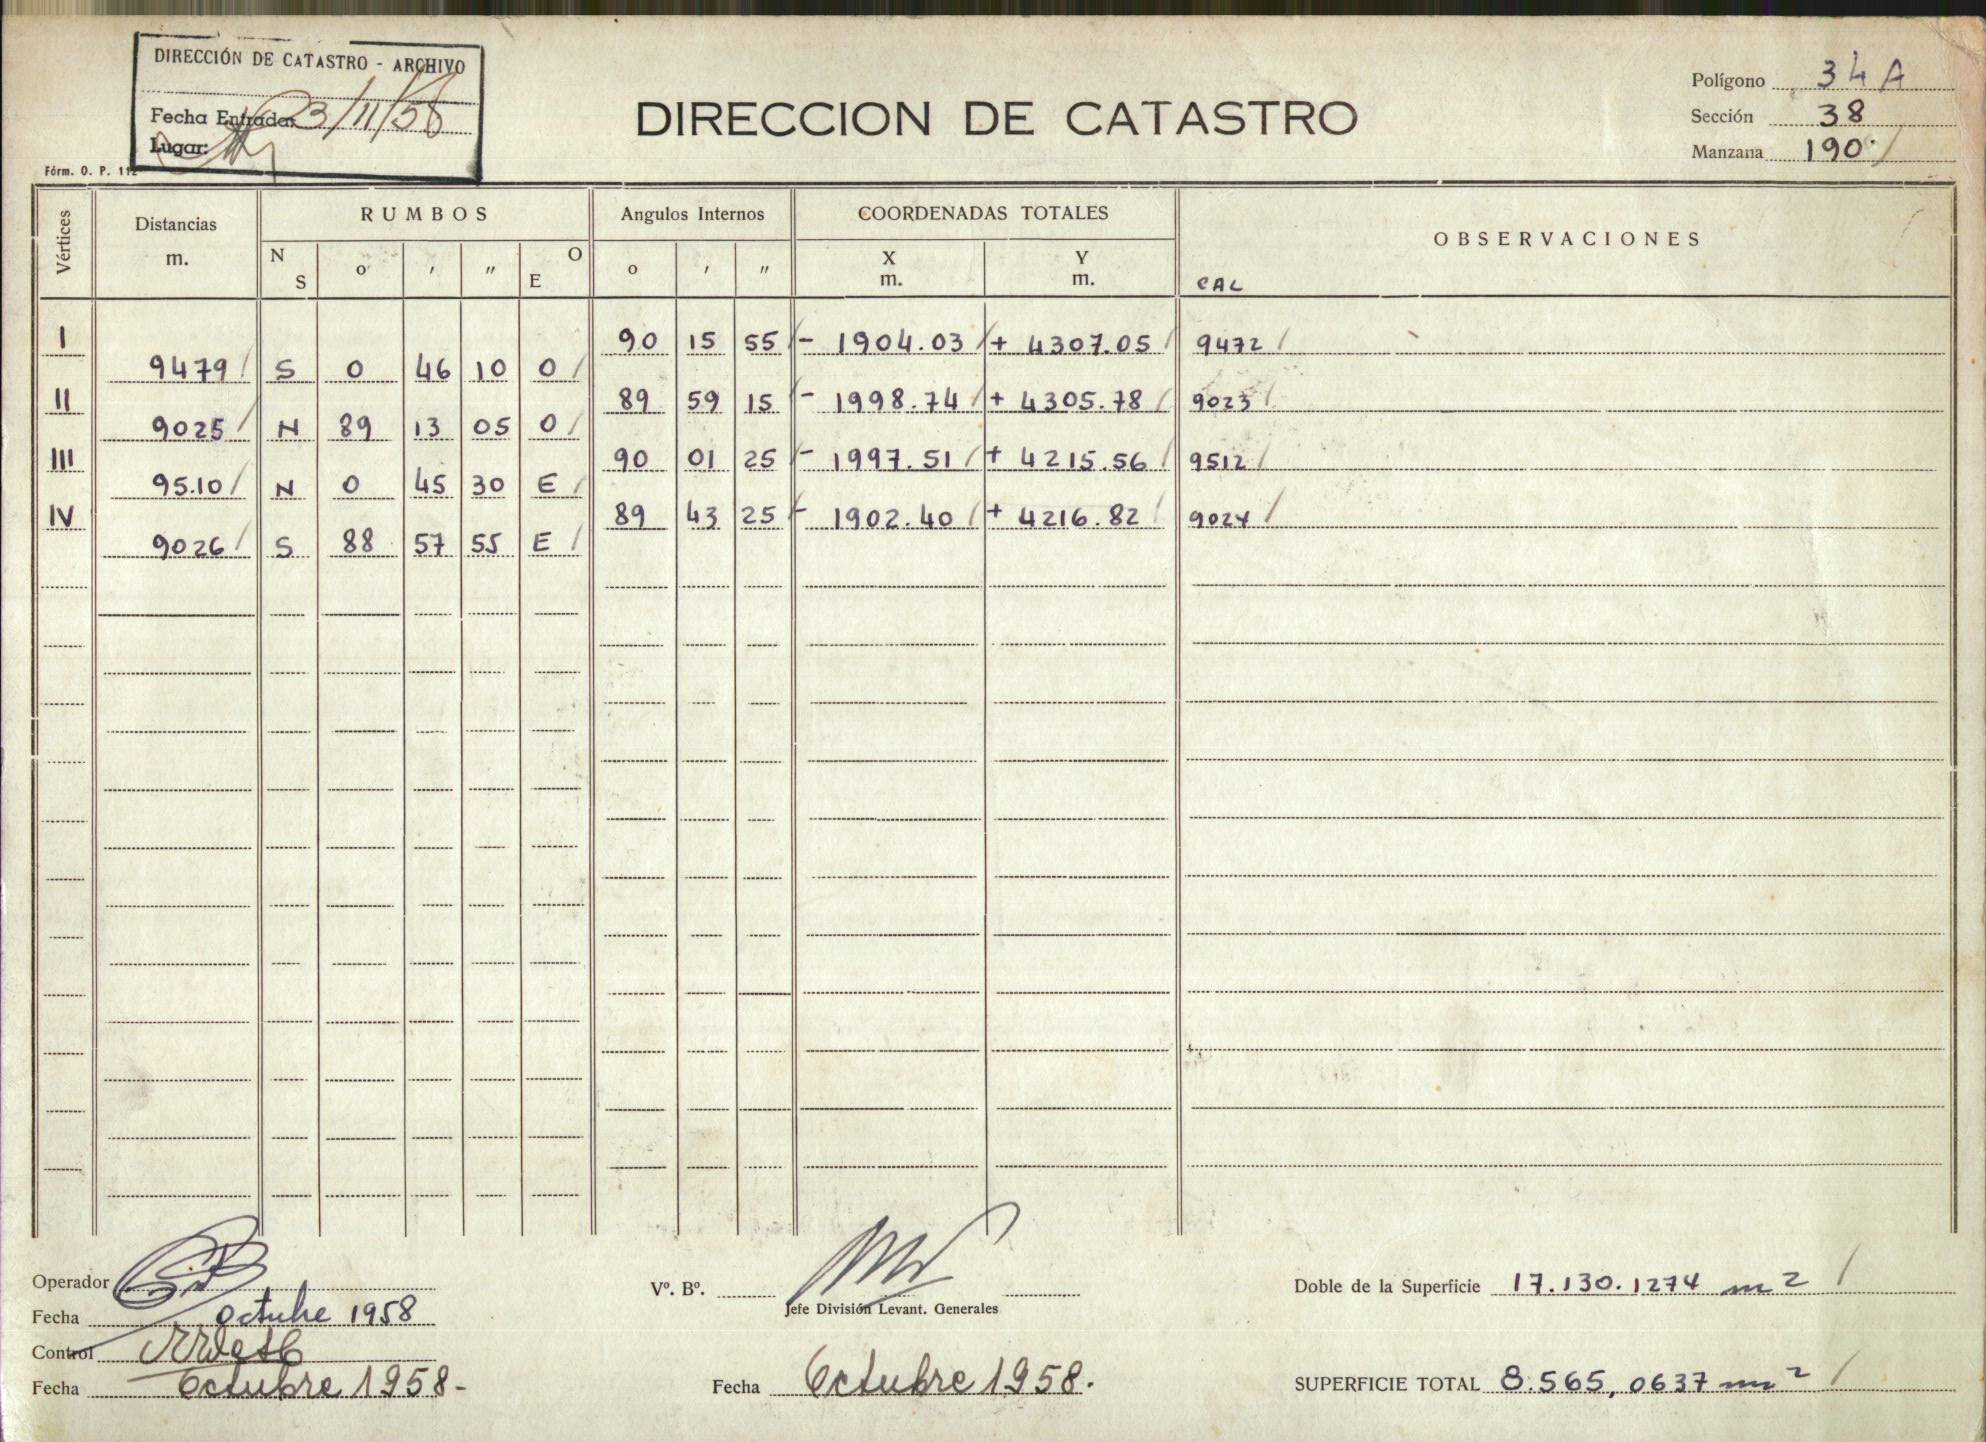 DIRECCIÓN DE CATASTRO - ARCHIVO
Fecha Entrada: 23/11/58
Lugar:
Fórm. O. P. 112
DIRECCION DE CATASTRO
Polígono 34 A
Sección 38
Manzana 190
Vértices Distancias m. RUMBOS Angulos Internos COORDENADAS TOTALES OBSERVACIONES
N S o ' " O E o ' " X m. Y m. CAL
I 90 15 55 - 1904.03 + 4307.05 9472
9479 S 0 46 10 O
II 89 59 15 - 1998.74 + 4305.78 9023
9025 N 89 13 05 O
III 90 01 25 - 1997.51 + 4215.56 9512
95.10 N 0 45 30 E
IV 89 43 25 - 1902.40 + 4216.82 9024
9026 S 88 57 55 E
Operador
Fecha octubre 1958
Control
Fecha Octubre 1958-
Vº. Bº.
Jefe División Levant. Generales
Fecha Octubre 1958.
Doble de la Superficie 17.130.1274 m2
SUPERFICIE TOTAL 8.565,0637 m2